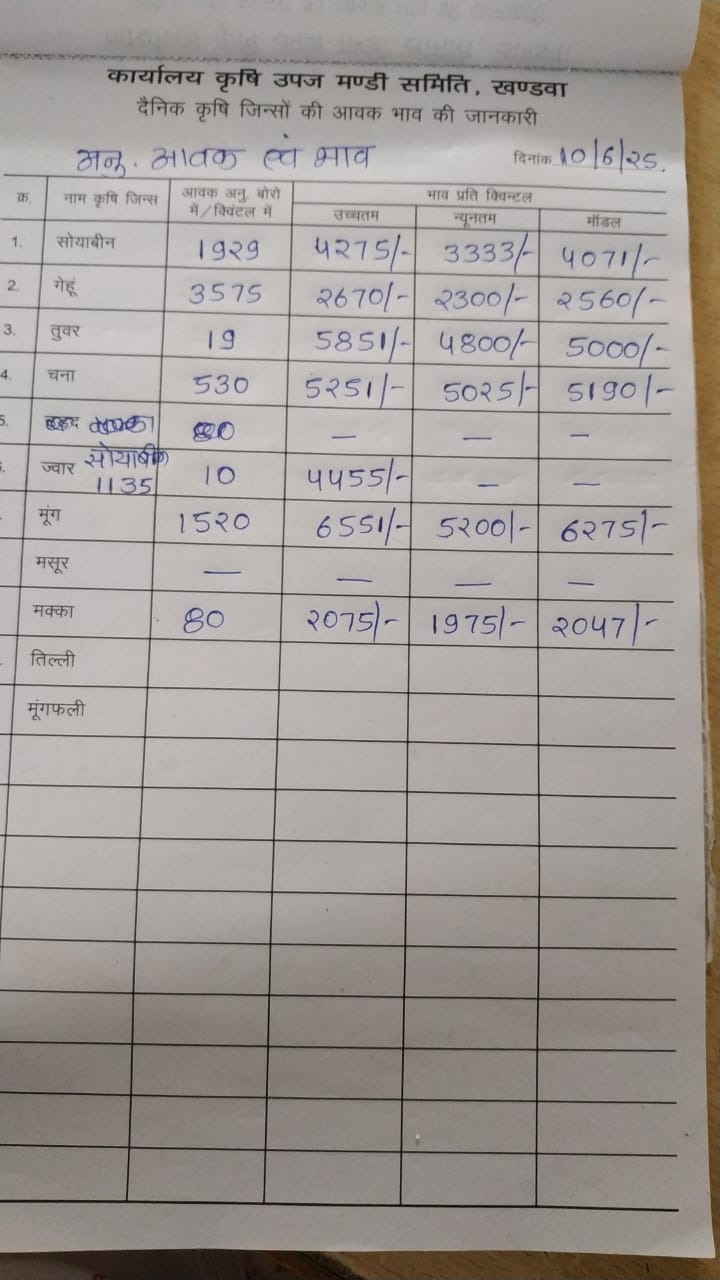 कार्यालय कृषि उपज मण्डी समिति, खण्डवा
दैनिक कृषि जिन्सों की आवक भाव की जानकारी
अनु. आवक एवं भाव दिनांक 10/6/25
क्र. नाम कृषि जिन्स आवक अनु. बोरो में/क्विंटल में भाव प्रति क्विन्टल
उच्चतम न्यूनतम मॉडल
1. सोयाबीन 1929 4275/- 3333/- 4071/-
2. गेहूं 3575 2670/- 2300/- 2560/-
3. तुवर 19 5851/- 4800/- 5000/-
4. चना 530 5251/- 5025/- 5190/-
5. — — —
ज्वार सोयाबीन 1135 10 4455/- — —
मूंग 1520 6551/- 5200/- 6275/-
मसूर — — — —
मक्का 80 2075/- 1975/- 2047/-
तिल्ली
मूंगफली